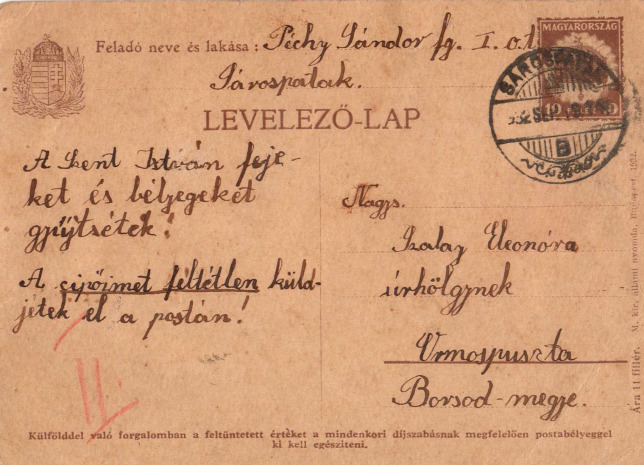 Feladó neve és lakása: Péchy Sándor fg. I. o. t.
Sárospatak.
MAGYARORSZÁG
SÁROSPATAK
932 SEP
B
LEVELEZŐ-LAP
A Szent István feje-
ket és bélyegeket
gyűjtsétek!
A cipőimet féltétlen küld-
jétek el a postán!
II.
Nagys.
Szalay Eleonóra
úrhölgynek
Urmospuszta
Borsod-megye.
Külfölddel való forgalomban a feltüntetett értéket a mindenkori díjszabásnak megfelelően postabélyeggel
ki kell egészíteni.
Ára 11 fillér. M. kir. állami nyomda, Budapest, 1932.